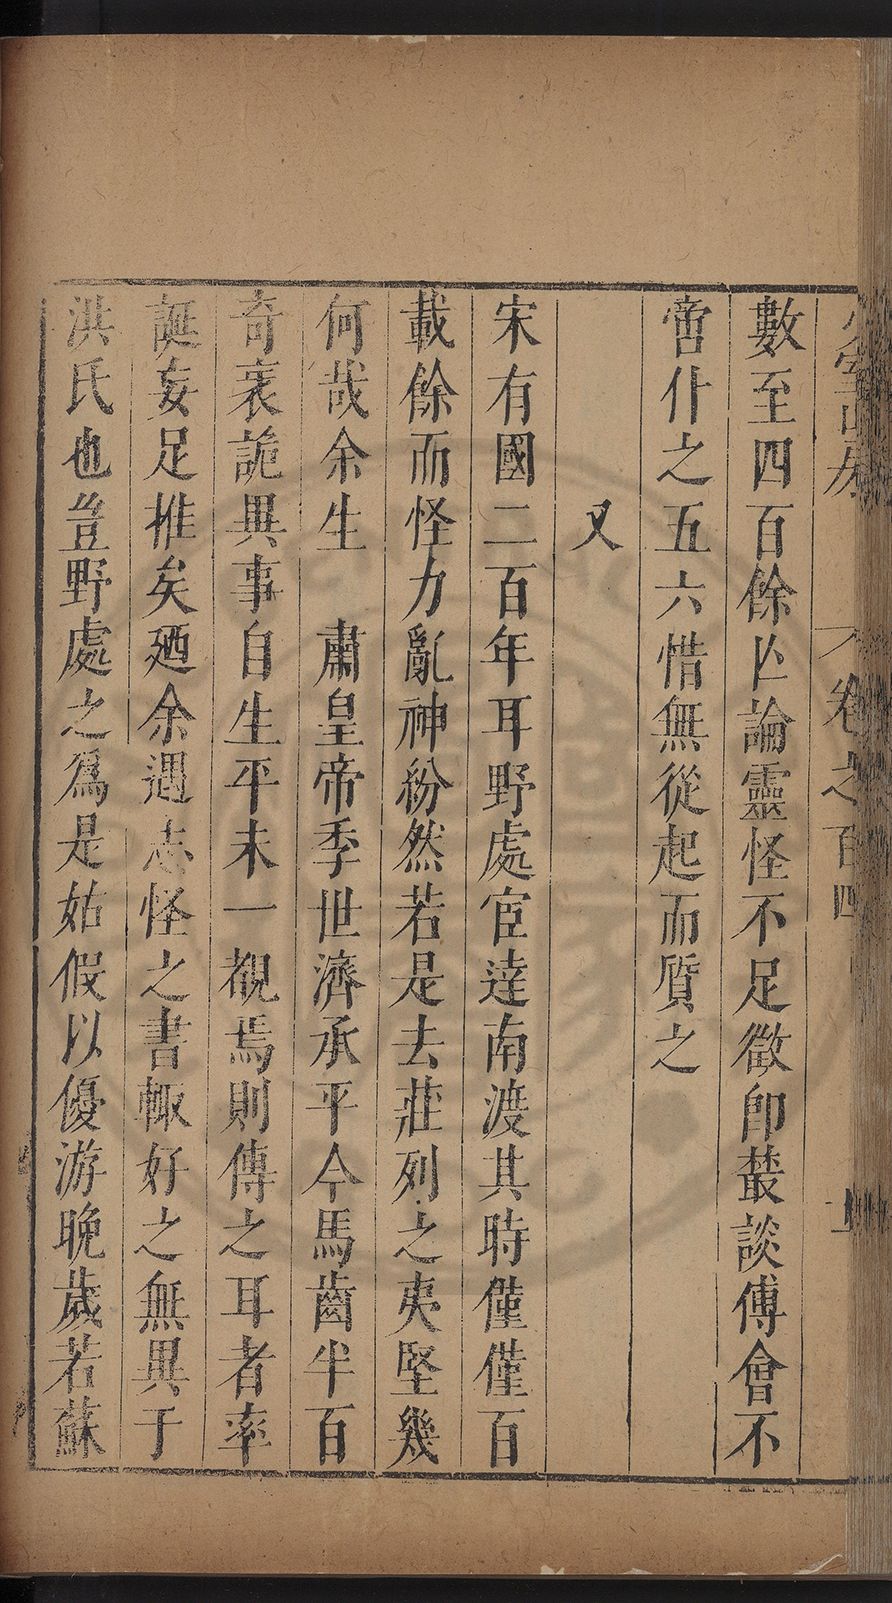 少室山房　卷之百四
數至四百餘亾論靈怪不足徵卽叢談傅會不
啻什之五六惜無從起而質之
又
宋有國二百年耳野處宦達南渡其時僅僅百
載餘而怪力亂神紛然若是去莊列之夷堅幾
何哉余生　肅皇帝季世濟承平今馬齒半百
奇衺詭異事自生平未一覩焉則傳之耳者率
誕妄足推矣廼余遇志怪之書輙好之無異于
洪氏也豈野處之爲是姑假以優游晚歲若蘇